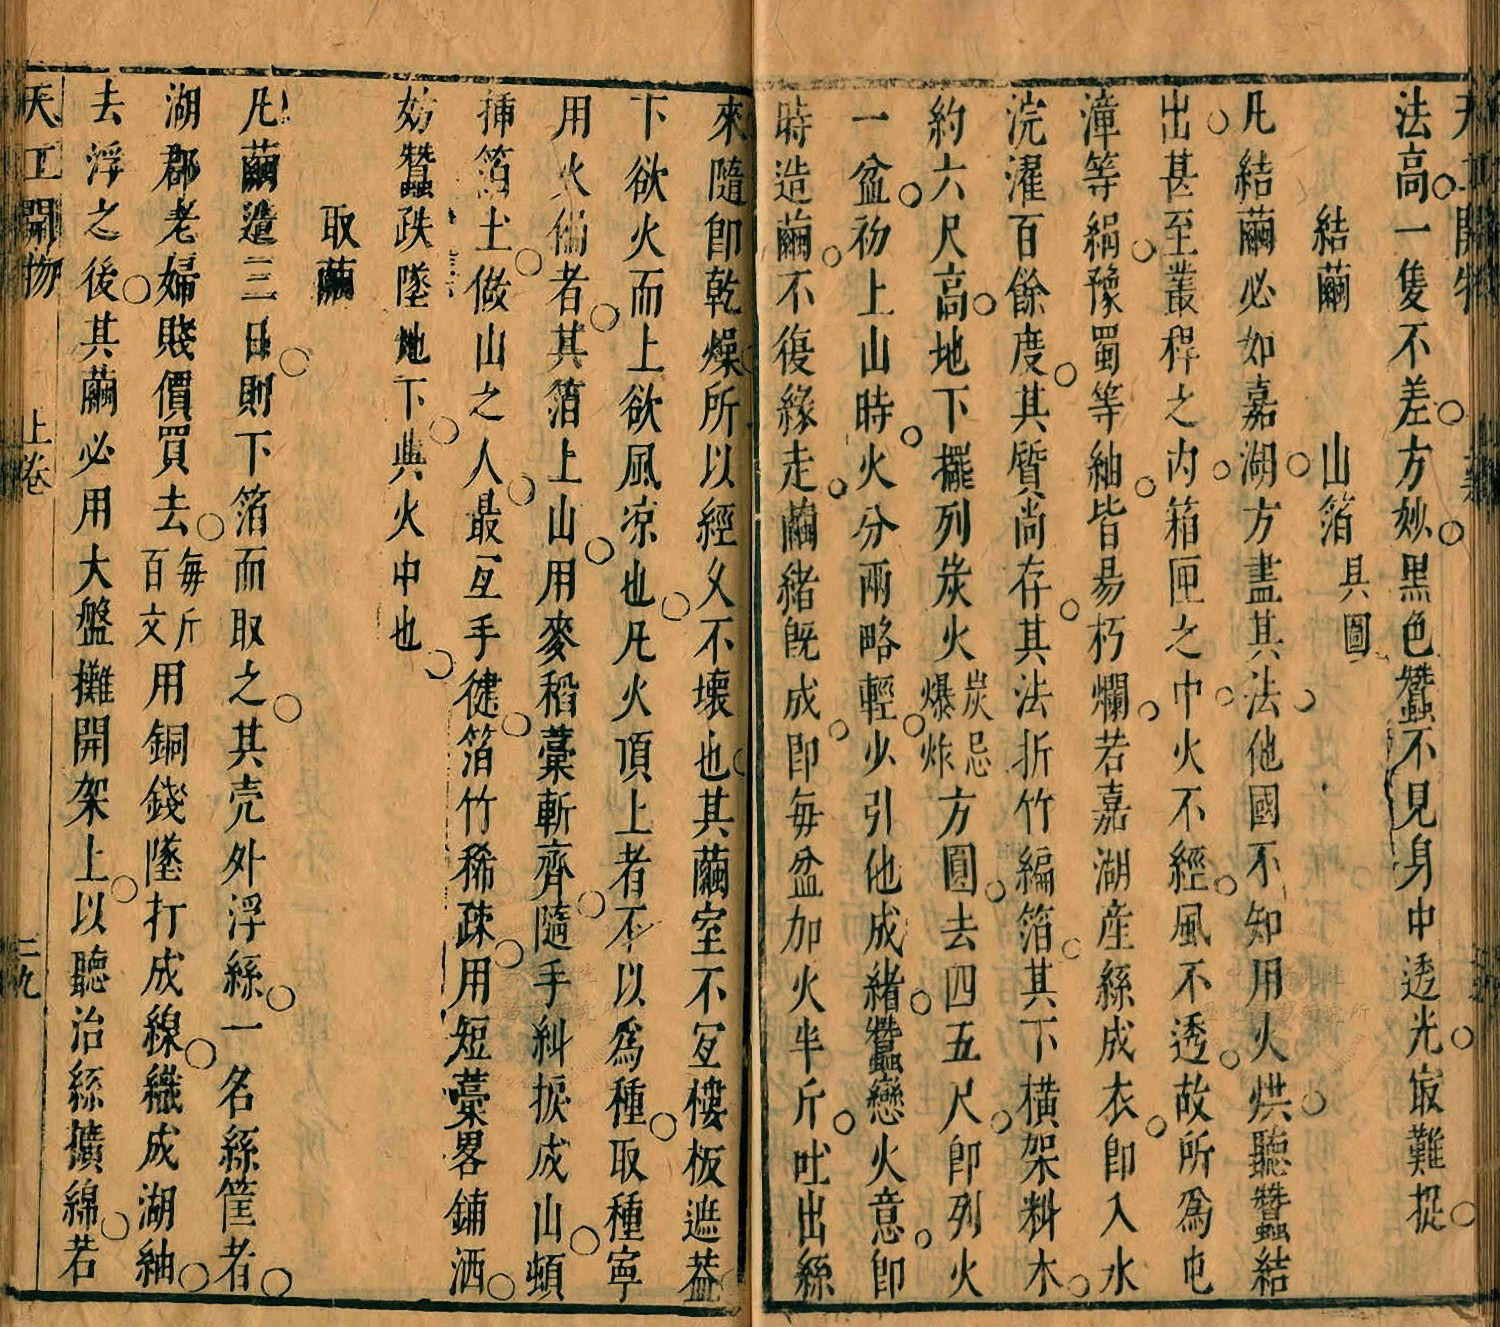 法高一隻不差方妙黑色蠶不見身中透光㝡難捉
結繭 山箔具圖
凡結繭必如嘉湖方盡其法他國不知用火烘聽蠶結
出甚至叢稈之內箱匣之中火不經風不透故所為屯
漳等絹豫蜀等紬皆易朽爛若嘉湖產絲成衣即入水
浣濯百餘度其質尚存其法折竹編箔其下橫架料木
約六尺高地下擺列炭火炭忌爆炸方圓去四五尺即列火
一盆初上山時火分兩略輕少引他成緒蠶戀火意即
時造繭不復緣走繭緒既成即毎盆加火半斤吐出絲
來隨即乾燥所以經久不壞也其繭室不宜樓板遮蓋
下欲火而上欲風凉也凡火頂上者不以為種取種寧
用火偏者其箔上山用麥稻藁斬齊隨手糾捩成山頓
揷箔上做山之人最宜手徤箔竹稀疎用短藁畧鋪洒
妨蠶跌墜地下與火中也
取繭
凡繭造三日則下箔而取之其壳外浮絲一名絲筐者
湖郡老婦賤價買去毎斤百文用銅錢墜打成線織成湖紬
去浮之後其繭必用大盤攤開架上以聽治絲擴綿若
天工開物 上卷 二九